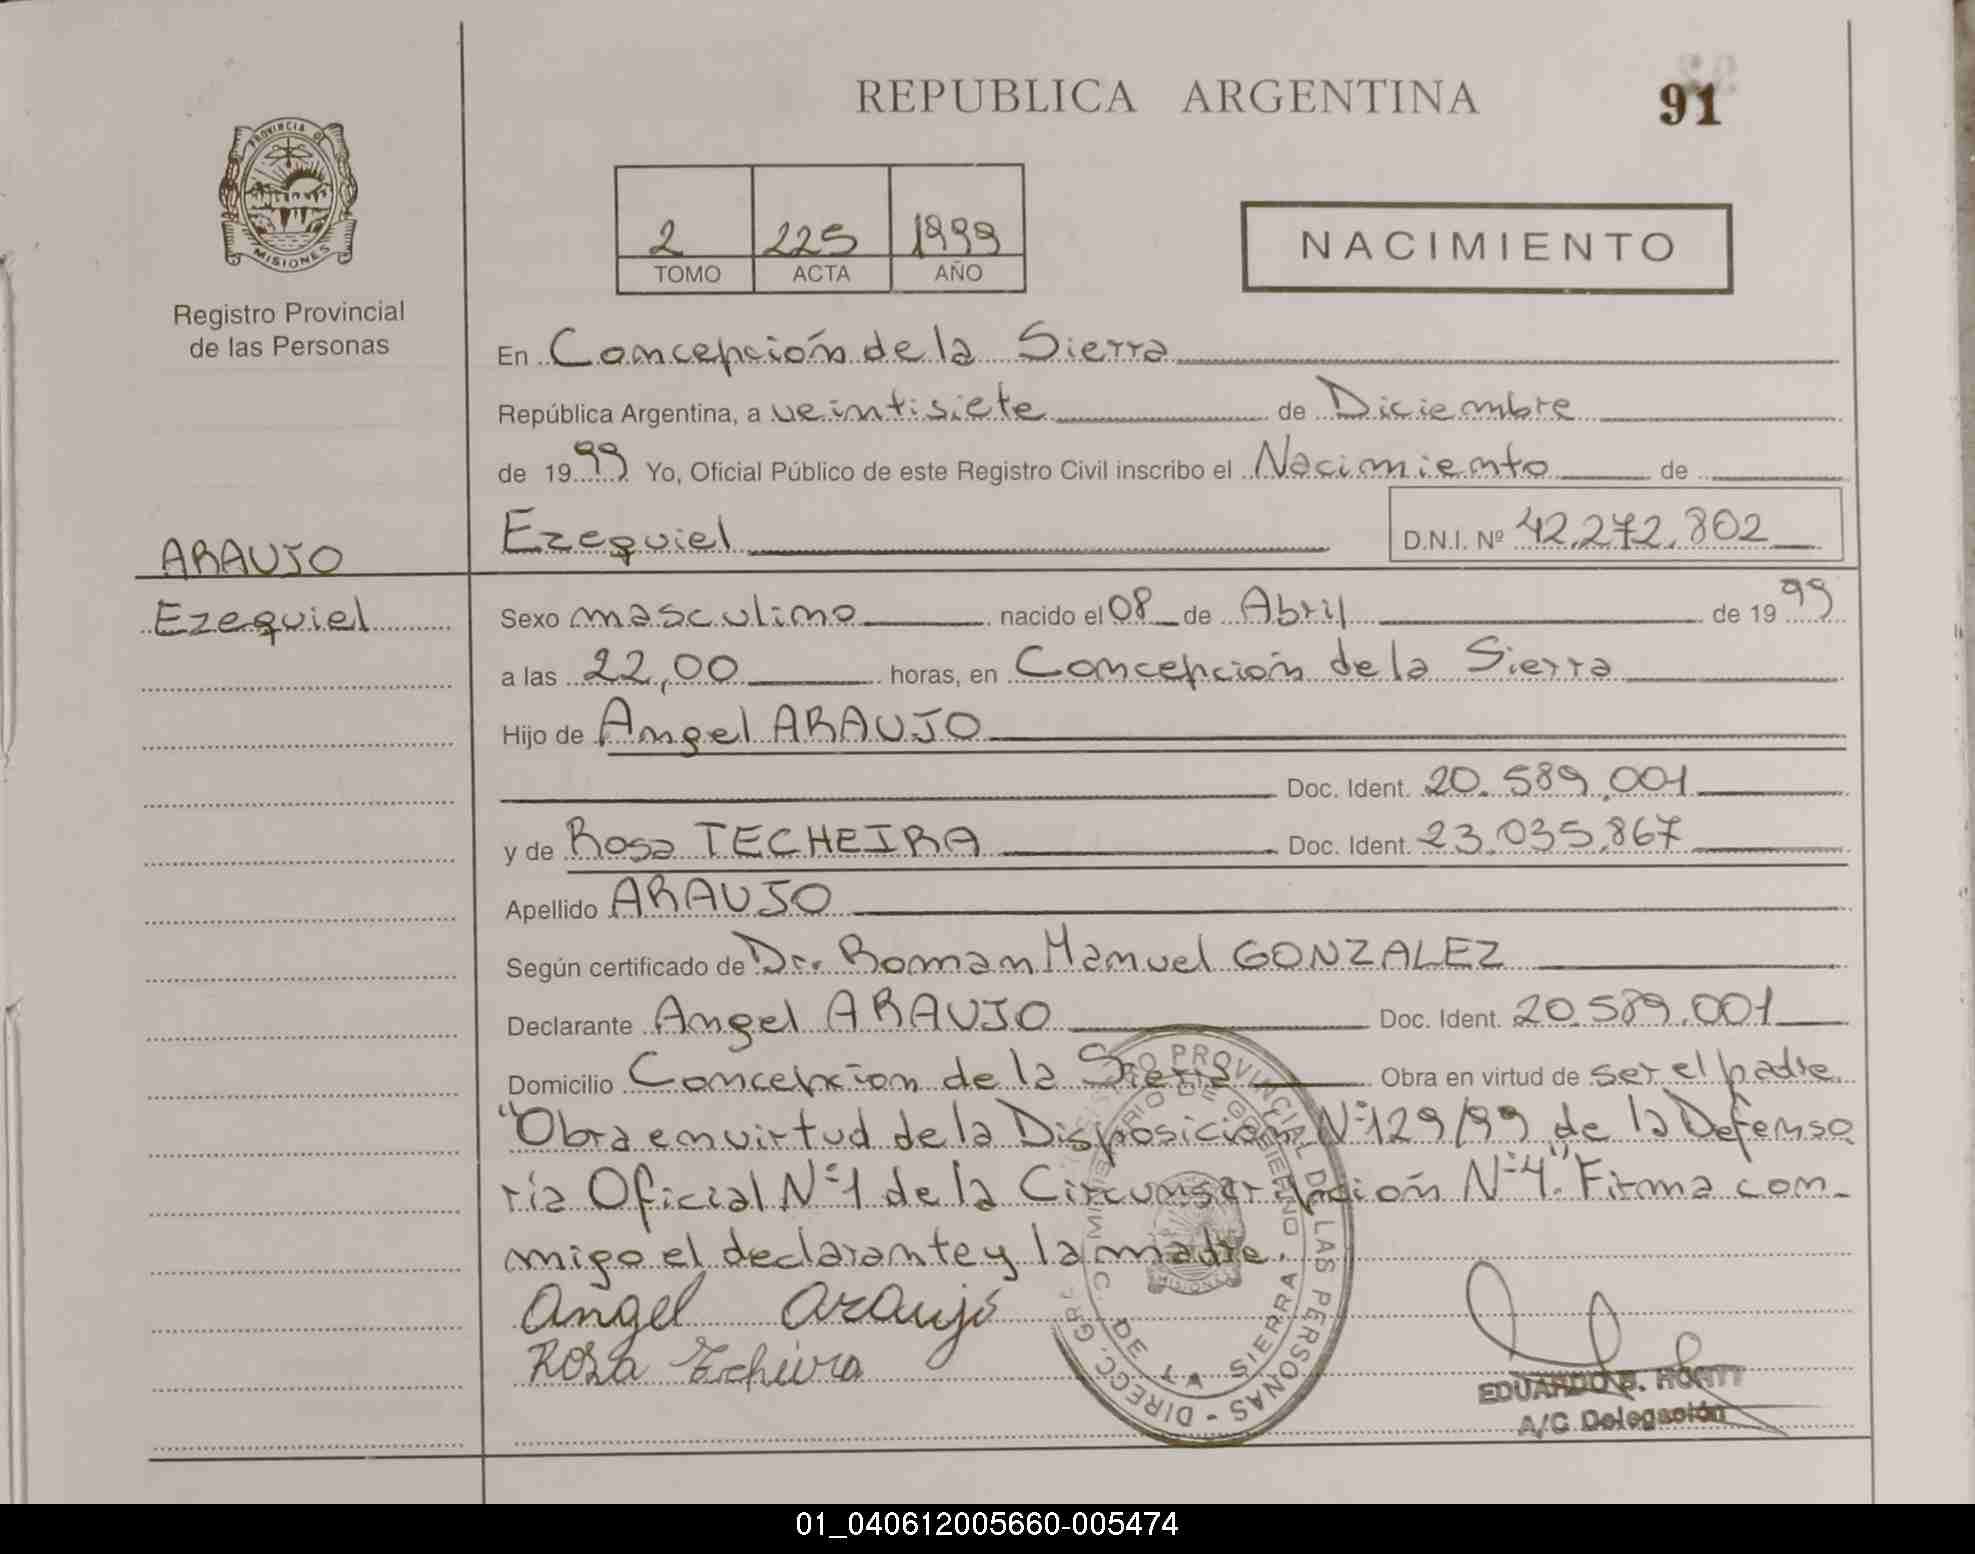 REPUBLICA ARGENTINA
91
PROVINCIA DE MISIONES
Registro Provincial
de las Personas
2 225 1999
TOMO ACTA AÑO
NACIMIENTO
En Concepción de la Sierra
República Argentina, a veintisiete de Diciembre
de 1999 Yo, Oficial Público de este Registro Civil inscribo el Nacimiento de
Ezequiel D.N.I. Nº 42.272.802
ARAUJO
Ezequiel
Sexo masculino nacido el 08 de Abril de 1999
a las 22,00 horas, en Concepción de la Sierra
Hijo de Angel ARAUJO
Doc. Ident. 20.589.001
y de Rosa TECHEIRA Doc. Ident. 23.035.867
Apellido ARAUJO
Según certificado de Dr. Roman Manuel GONZALEZ
Declarante Angel ARAUJO Doc. Ident. 20.589.001
Domicilio Concepcion de la Sierra Obra en virtud de ser el padre
"Obra en virtud de la Disposición Nº 129/99 de la Defenso
ría Oficial Nº 1 de la Circunscripción Nº 4". Firma con-
migo el declarante y la madre.
Angel Araujo
Rosa Techeira
PROVINCIAL DE LAS PERSONAS - DIRECC. GRAL.
MINISTERIO DE GOBIERNO
DE LA SIERRA
MISIONES
EDUARDO
A/C Delegación
01_040612005660-005474